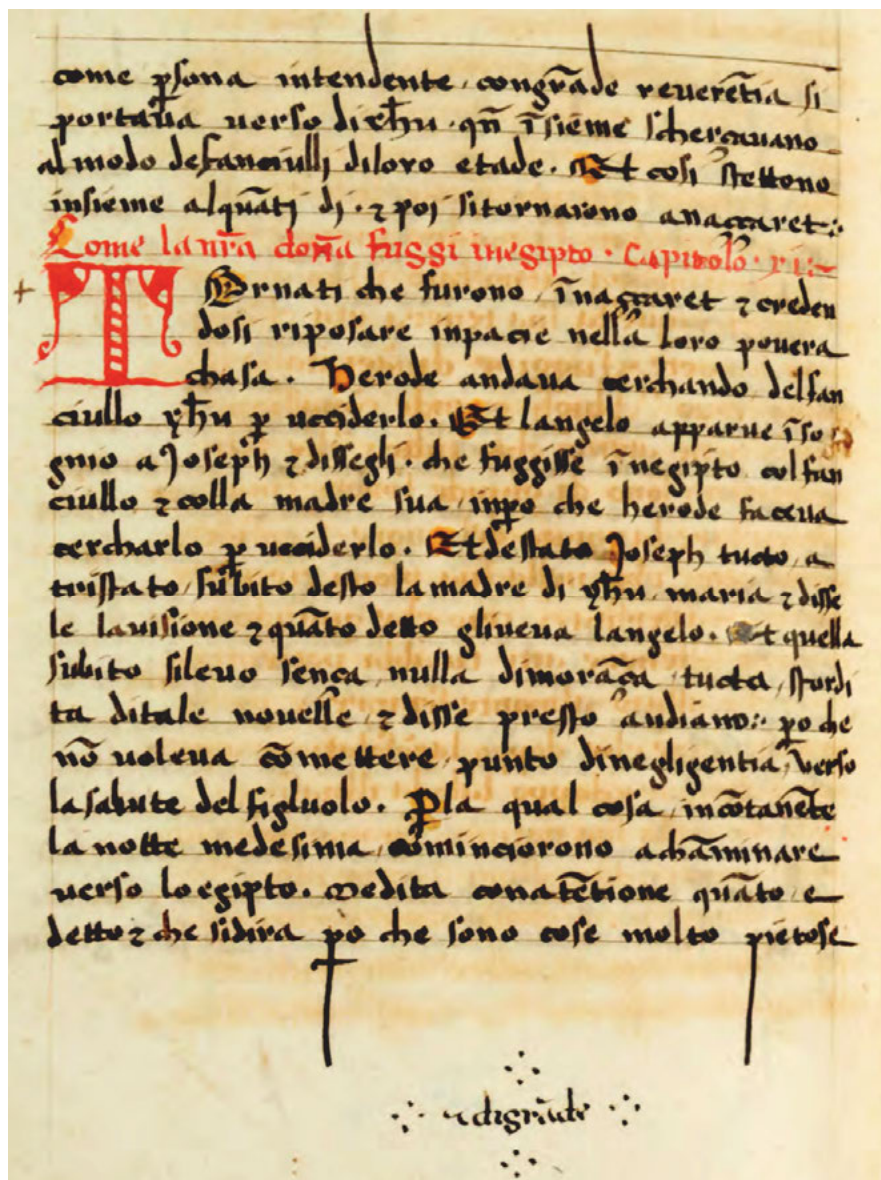 come ꝑsona intendente congrāde reuerētia si
portaua uerso dixh̄u · qn̄ īsieme schercauano
al modo defanciulli diloro etade · Et cosi stettono
insieme alquāti di · ⁊ poi sitornarono anaççaret :
Come la nr̄a don̄a fuggi inegipto · Capitolo · xi :~
TOrnati che furono īnaççaret ⁊ creden
dosi riposare inpacie nella loro pouera
chasa · Herode andaua cerchando delfan
ciullo yh̄u ꝑ ucciderlo · Et langelo apparue īso
gnio a Joseph ⁊ dissegli · che fuggisse īnegipto col fan
ciullo ⁊ colla madre sua inꝑo che herode faceua
cercharlo ꝑ ucciderlo · Et destato Joseph tucto a
tristato subito desto la madre di yh̄u maria ⁊ disse
le lauisione ⁊ quāto detto gliueua langelo · Et quella
subito sileuo sença nulla dimorāça tucta stordi
ta ditale nouelle ⁊ disse presto andiano : ꝑo che
nō uoleua cōmettere punto dinegligentia uerso
lasalute del figluolo · Ꝑla qual cosa incōtanēte
la notte medesima cominciorono achāminare
uerso loegipto · Medita conatētione quāto e
detto ⁊ che sidira ꝑo che sono cose molto pietose
⁊ digrāde